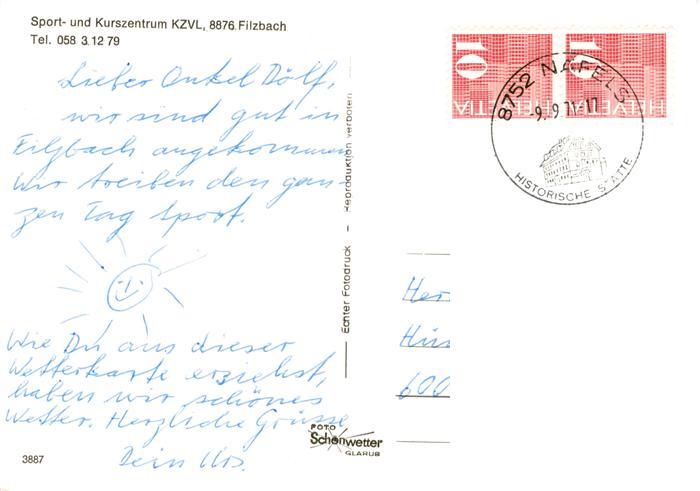 Sport- und Kurszentrum KZVL, 8876 Filzbach
Tel. 058 3.12 79
Lieber Onkel Dölf,
wir sind gut in
Filzbach angekommen.
Wir treiben den gan-
zen Tag Sport.
Wie Du aus dieser
Wetterkarte erziehst,
haben wir schönes
Wetter. Herzliche Grüsse
Dein Urs.
3887
Echter Fotodruck – Reproduktion verboten
FOTO
Schönwetter
GLARUS
10
HELVETIA
10
HELVETIA
8752 NÄFELS
-9.-9.71-17
HISTORISCHE STÄTTE
Her
Hüs
600